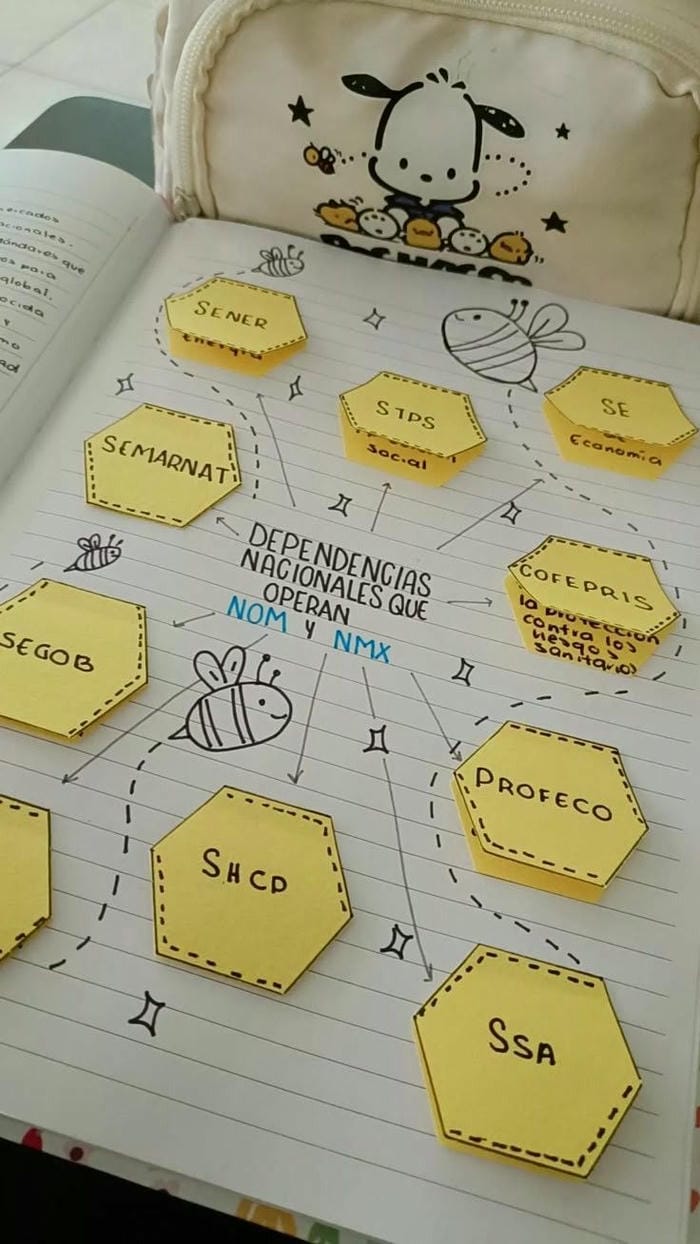 ercados
acionales.
tándares que
os para
global.
ocida
y
mo
ad
SENER
Energía
STPS
Social
SE
Economía
SEMARNAT
DEPENDENCIAS
NACIONALES QUE
OPERAN
NOM Y NMX
COFEPRIS
la protección
contra los
riesgos
sanitarios
SEGOB
PROFECO
SHCP
SSA